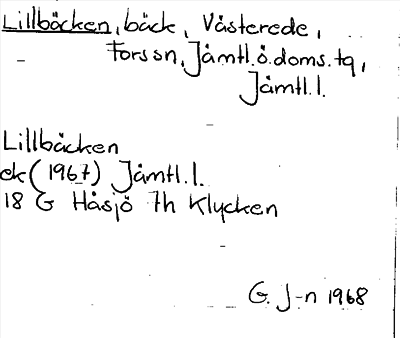 Lillbäcken, bäck, Västerede,
Forssn, Jämtl.ö.doms.tq,
Jämtl.l.
Lillbäcken
ek (1967) Jämtl.l.
18 G Håsjö 7h Klycken
G. J-n 1968